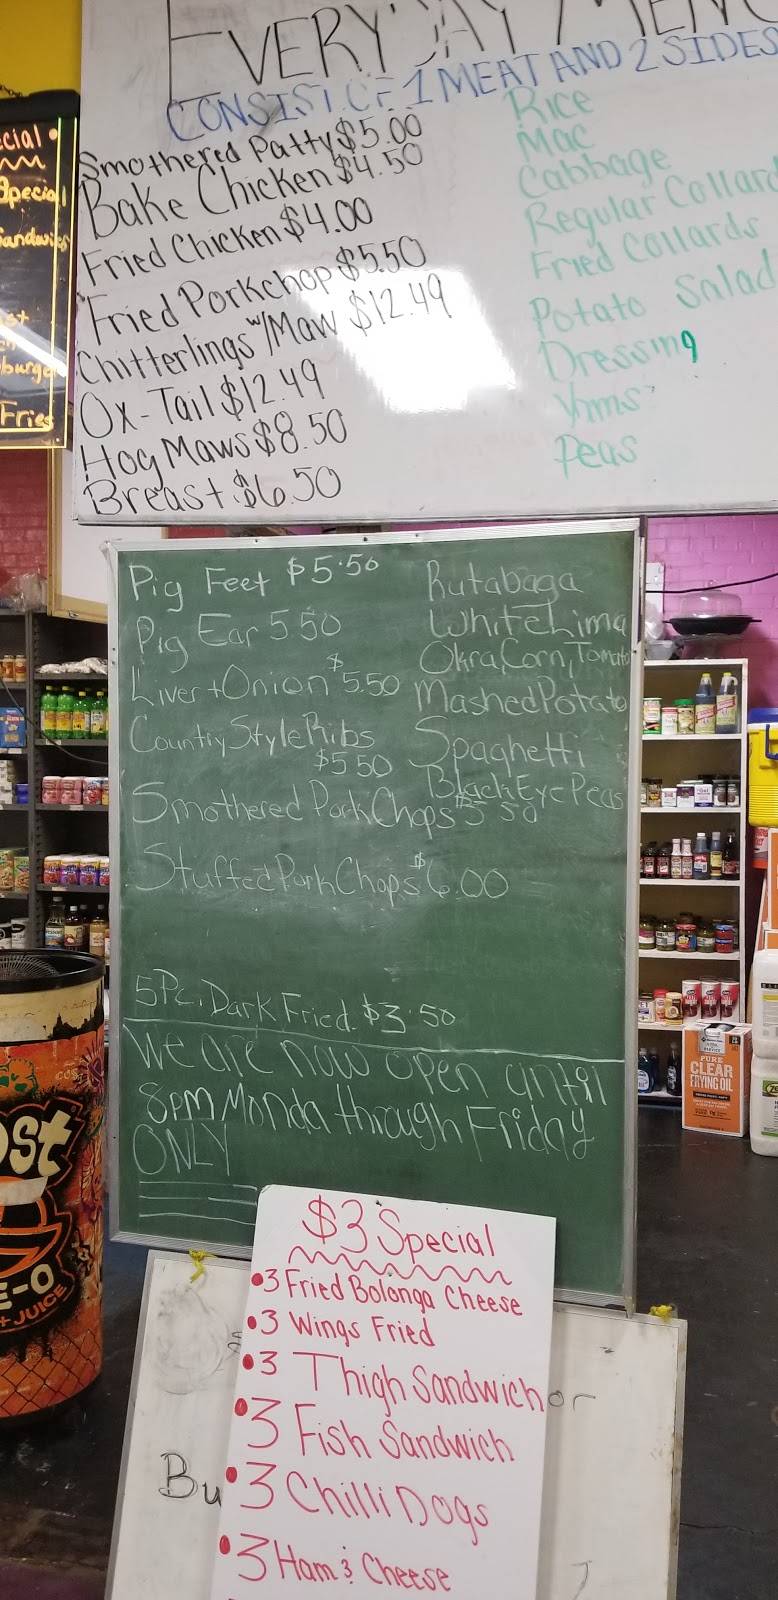 EVERYDAY MENU
CONSIST OF 1 MEAT AND 2 SIDES
Smothered Patty $5.00
Bake Chicken $4.50
Fried Chicken $4.00
Fried Porkchop $5.50
Chitterlings w/Maw $12.49
Ox-Tail $12.49
Hog Maws $8.50
Breast $6.50
Rice
Mac
Cabbage
Regular Collard
Fried Collards
Potato Salad
Dressing
Yams
Peas
cial
Special
andwich
burge
Fries
Pig Feet $5.50
Pig Ear 5.50
Liver + Onion $5.50
Country Style Ribs
$5.50
Smothered Pork Chops $5.50
Stuffed Pork Chops $6.00
Rutabaga
White Lima
Okra, Corn, Tomato
Mashed Potato
Spaghetti
Black Eye Peas
5 Pc. Dark Fried $3.50
We are now open until
8pm Monda through Friday
ONLY
$3 Special
• 3 Fried Bolonga Cheese
• 3 Wings Fried
• 3 Thigh Sandwich
• 3 Fish Sandwich
• 3 Chilli Dogs
• 3 Ham & Cheese
or
Bu
PURE
CLEAR
FRYING OIL
ost
E-O
+ JUICE